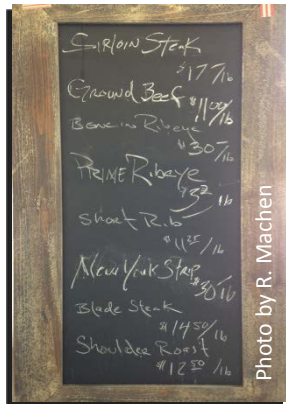 Sirloin Steak
$17-/lb
Ground Beef
$11.00/lb
Bone in Ribeye
$30-/lb
Prime Ribeye
$32 lb
Short Rib
$11.25/lb
New York Strip
$30-/lb
Blade Steak
$14.50/lb
Shoulder Roast
$12.50/lb
Photo by R. Machen